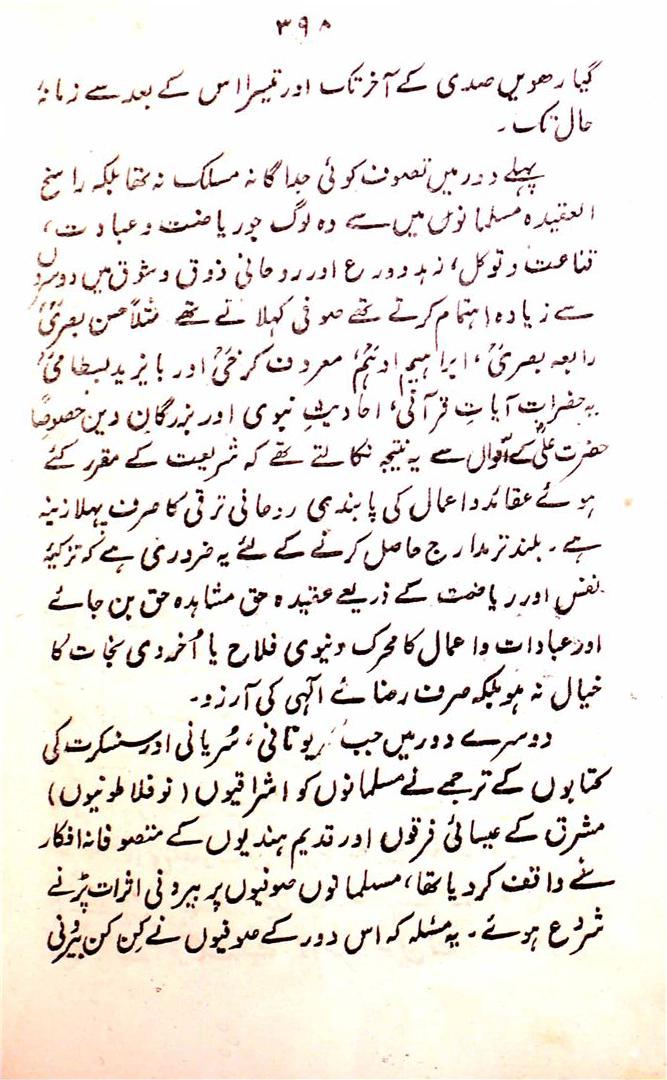 ۳۹۸
گیارھویں صدی کے آخر تک اور تیسرا اس کے بعد سے زمانۂ
حال تک۔
پہلے دور میں تصوف کوئی جداگانہ مسلک نہ تھا بلکہ راسخ
العقیدہ مسلمانوں میں سے وہ لوگ جو ریاضت و عبادت،
قناعت و توکل، زہد و ورع اور روحانی ذوق و شوق میں دوسروں
سے زیادہ اہتمام کرتے تھے صوفی کہلاتے تھے مثلاً حسن بصریؒ
رابعہ بصریؒ، ابراہیم ادہمؒ، معروف کرخیؒ اور بایزید بسطامیؒ
یہ حضرات آیاتِ قرآنی، احادیثِ نبوی اور بزرگانِ دین خصوصاً
حضرت علیؓ کے اقوال سے یہ نتیجہ نکالتے تھے کہ شریعت کے مقرر کئے
ہوئے عقائد و اعمال کی پابندی روحانی ترقی کا صرف پہلا زینہ
ہے۔ بلند تر مدارج حاصل کرنے کے لئے یہ ضروری ہے کہ تزکیۂ
نفس اور ریاضت کے ذریعے عقیدہ حق مشاہدہ حق بن جائے
اور عبادات و اعمال کا محرک دنیوی فلاح یا اُخروی نجات کا
خیال نہ ہو بلکہ صرف رضائے الٰہی کی آرزو۔
دوسرے دور میں جب یونانی، سُریانی اور سنسکرت کی
کتابوں کے ترجمے نے مسلمانوں کو اشراقیوں (نوفلاطونیوں)
مشرق کے عیسائی فرقوں اور قدیم ہندیوں کے متصوفانہ افکار
سے واقف کر دیا تھا، مسلمانوں صوفیوں پر بیرونی اثرات پڑنے
شروع ہوئے۔ یہ مسٔلہ کہ اس دور کے صوفیوں نے کِن کن بیرونی